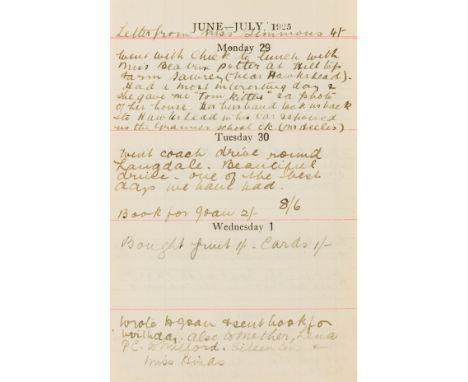 JUNE—JULY, 1925
Letter from Miss Simmons 4/-
Monday 29
Went with Chick to lunch with
Miss Beatrix Potter at Hill top
Farm Sawrey (near Hawkshead).
Had a most interesting day &
she gave me "Tom Kitten" & a photo
of her house. Her husband took us back
to Hawkshead in his car & showed
us the Grammar school &c
Tuesday 30
Went coach drive round
Langdale. Beautiful
drive - one of the best
days we have had.
8/6
Book for Joan 2/-
Wednesday 1
Bought fruit 1/- Cards 1/-
Wrote to Joan & sent book for
birthday. Also to Mother, Lena
P.C. to Milford. Eileen
Miss Hinds